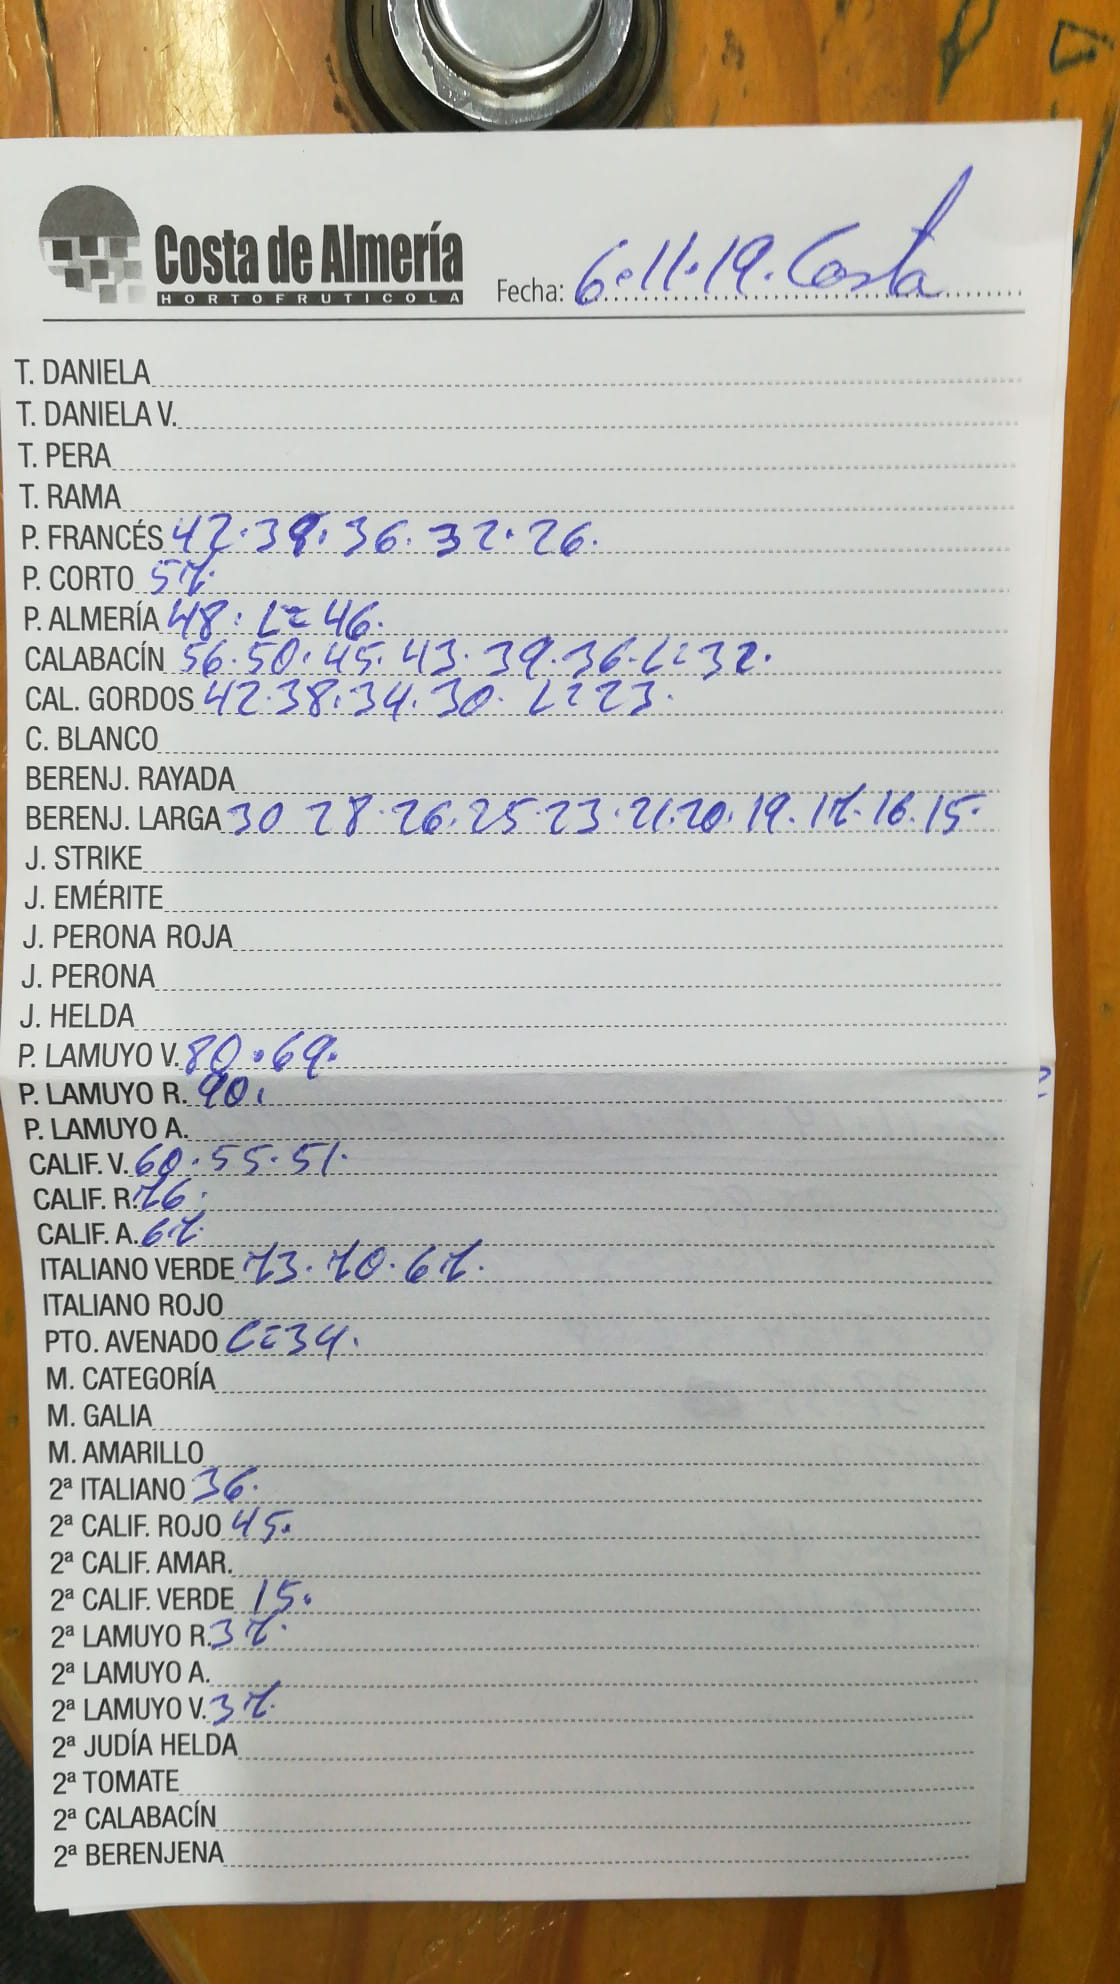 Costa de Almería
HORTOFRUTICOLA
Fecha: 6.11.19. Costa
T. DANIELA
T. DANIELA V.
T. PERA
T. RAMA
P. FRANCÉS 42.39.36.32.26.
P. CORTO 57.
P. ALMERÍA 48: L=46.
CALABACÍN 56.50.45.43.39.36.L=32.
CAL. GORDOS 42.38.34.30. L=23.
C. BLANCO
BERENJ. RAYADA
BERENJ. LARGA 30 28.26.25.23.21.20.19.17.16.15.
J. STRIKE
J. EMÉRITE
J. PERONA ROJA
J. PERONA
J. HELDA
P. LAMUYO V. 80.69.
P. LAMUYO R. 90.
P. LAMUYO A.
CALIF. V. 60.55.51.
CALIF. R. 76.
CALIF. A. 67.
ITALIANO VERDE 73.70.67.
ITALIANO ROJO
PTO. AVENADO C=34.
M. CATEGORÍA
M. GALIA
M. AMARILLO
2ª ITALIANO 36.
2ª CALIF. ROJO 45.
2ª CALIF. AMAR.
2ª CALIF. VERDE 15.
2ª LAMUYO R. 37.
2ª LAMUYO A.
2ª LAMUYO V. 37.
2ª JUDÍA HELDA
2ª TOMATE
2ª CALABACÍN
2ª BERENJENA